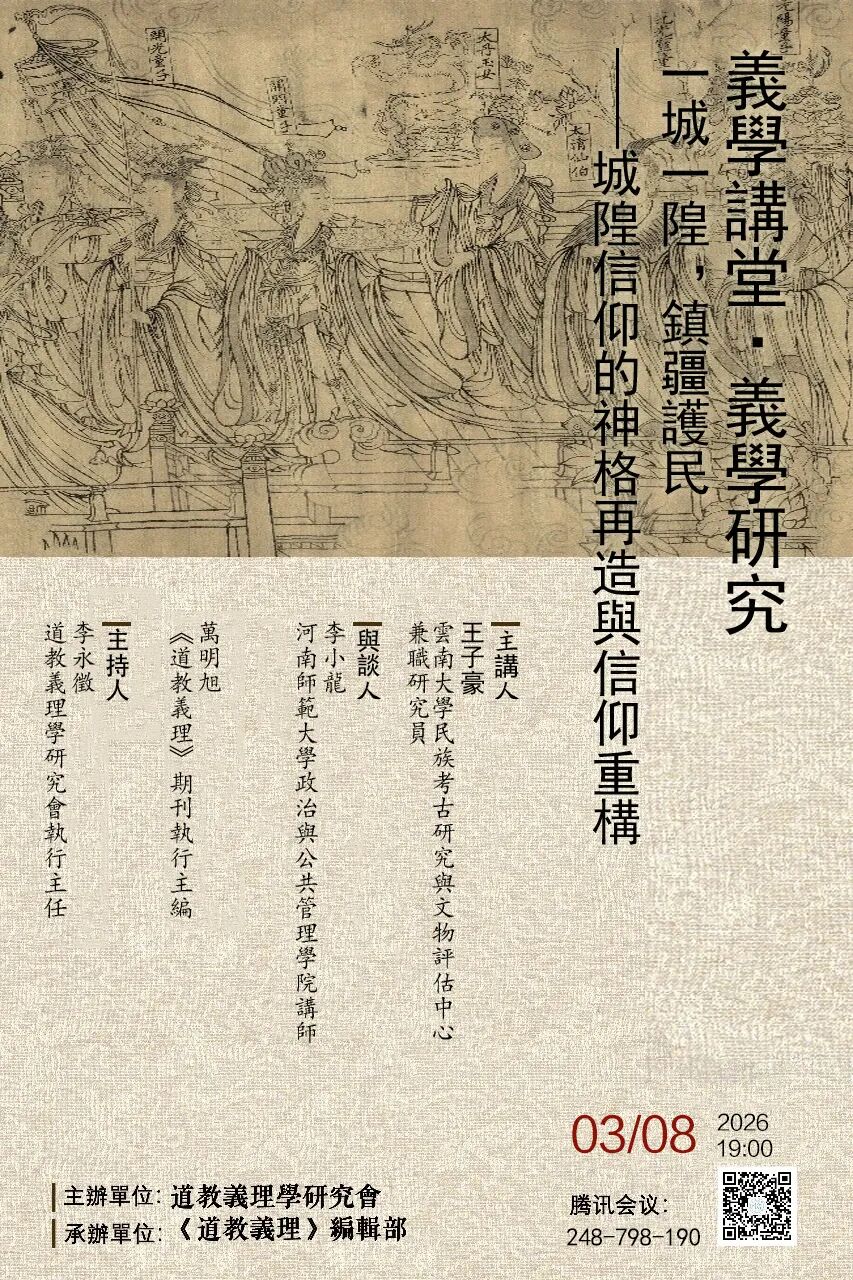 義學講堂·義學研究
一城一隍，鎮疆護民
——城隍信仰的神格再造與信仰重構
主講人
王子豪
雲南大學民族考古研究與文物評估中心
兼職研究員
與談人
李小龍
河南師範大學政治與公共管理學院講師
萬明旭
《道教義理》期刊執行主編
主持人
李永徵
道教義理學研究會執行主任
太丹玉女
太清仙伯
開光童子
開明童子
03/08
2026
19:00
腾讯会议：
248-798-190
主辦單位：道教義理學研究會
承辦單位：《道教義理》編輯部